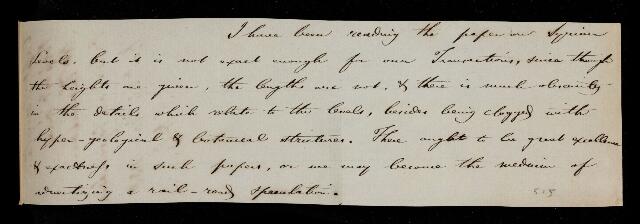 I have been reading the paper on Syrian
levels. but it is not exact enough for our Transactions, since though
the heights are given, the lengths are not, & there is much obscurity
in the details which relate to the levels, besides being clogged with
hyper-geological & botanical strictures. There ought to be great excellence
& exactness in such papers, or we may become the medium of
advertizing a rail-road speculation.